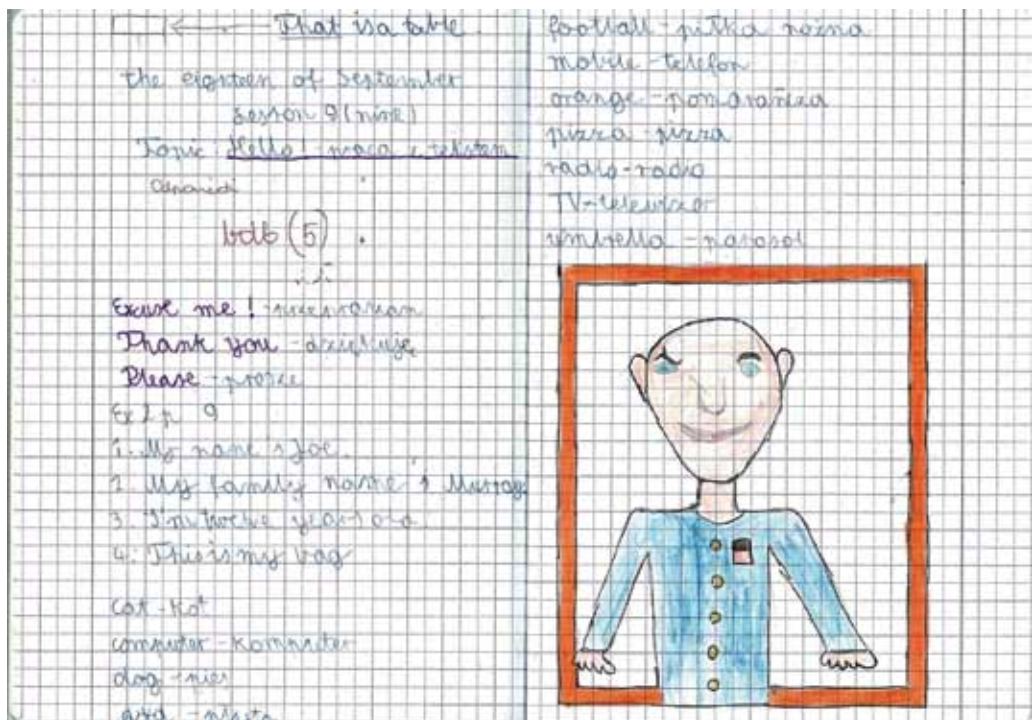 That is a table.
the eighteen of September
Lesson 9 (nine)
Topic: Hello! - praca z tekstem
bdb (5)
Excuse me! - przepraszam
Thank you - dziękuję
Please - proszę
Ex 2 p 9
1. My name's Joe.
2. My family name's Murray.
3. I'm twelve years old
4. This is my bag
cat - kot
computer - komputer
dog - pies
football - piłka nożna
mobile - telefon
orange - pomarańcza
pizza - pizza
radio - radio
TV - telewizor
umbrella - parasol